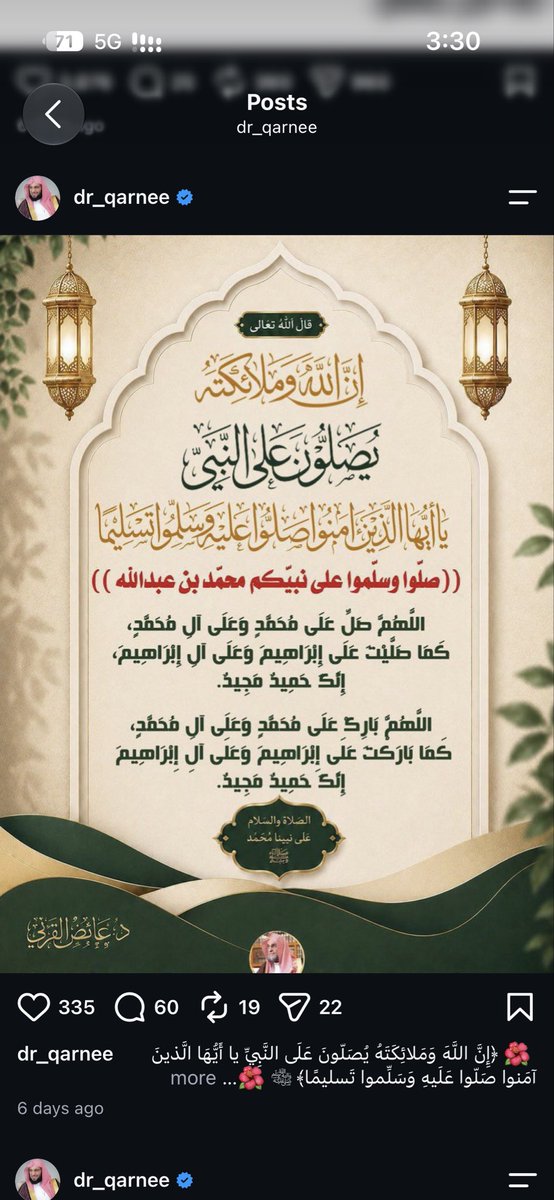 71 5G 3:30
Posts
dr_qarnee
dr_qarnee
قال الله تعالى
إِنَّ اللَّهَ وَمَلَائِكَتَهُ
يُصَلُّونَ عَلَى النَّبِيِّ
يَا أَيُّهَا الَّذِينَ آمَنُوا صَلُّوا عَلَيْهِ وَسَلِّمُوا تَسْلِيمًا
((صلّوا وسلّموا على نبيّكم محمّد بن عبدالله ))
اللَّهُمَّ صَلِّ عَلَى مُحَمَّدٍ وَعَلَى آلِ مُحَمَّدٍ،
كَمَا صَلَّيْتَ عَلَى إِبْرَاهِيمَ وَعَلَى آلِ إِبْرَاهِيمَ،
إِنَّكَ حَمِيدٌ مَجِيدٌ.
اللَّهُمَّ بَارِكْ عَلَى مُحَمَّدٍ وَعَلَى آلِ مُحَمَّدٍ،
كَمَا بَارَكْتَ عَلَى إِبْرَاهِيمَ وَعَلَى آلِ إِبْرَاهِيمَ
إِنَّكَ حَمِيدٌ مَجِيدٌ.
الصلاة والسلام
على نبينا مُحَمَّد
ﷺ
د. عائض القرني
335 60 19 22
dr_qarnee 🌺 ﴿إِنَّ اللَّهَ وَمَلائِكَتَهُ يُصَلّونَ عَلَى النَّبِيِّ يا أَيُّهَا الَّذينَ
آمَنوا صَلّوا عَلَيهِ وَسَلِّموا تَسليمًا﴾ ﷺ 🌺... more
6 days ago
dr_qarnee